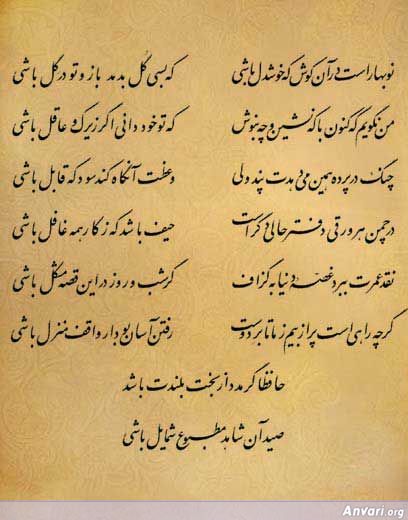 نوبهار است در آن کوش که خوشدل باشی که بسی گل بدمد باز و تو در گل باشی
من نگویم که کنون با که نشین و چه بنوش که تو خود دانی اگر زیرک و عاقل باشی
چنگ در پرده همین می دهدت پند ولی وعظت آنگاه کند سود که قابل باشی
در چمن هر ورقی دفتر حالی دگر است حیف باشد که ز کار همه غافل باشی
نقد عمرت ببرد غصه دنیا به گزاف گر شب و روز در این قصه مشکل باشی
گرچه راهی است پر از بیم ز ما تا بر دوست رفتن آسان بود ار واقف منزل باشی
حافظا گر مدد از بخت بلندت باشد
صید آن شاهد مطبوع شمایل باشی
Anvari.org